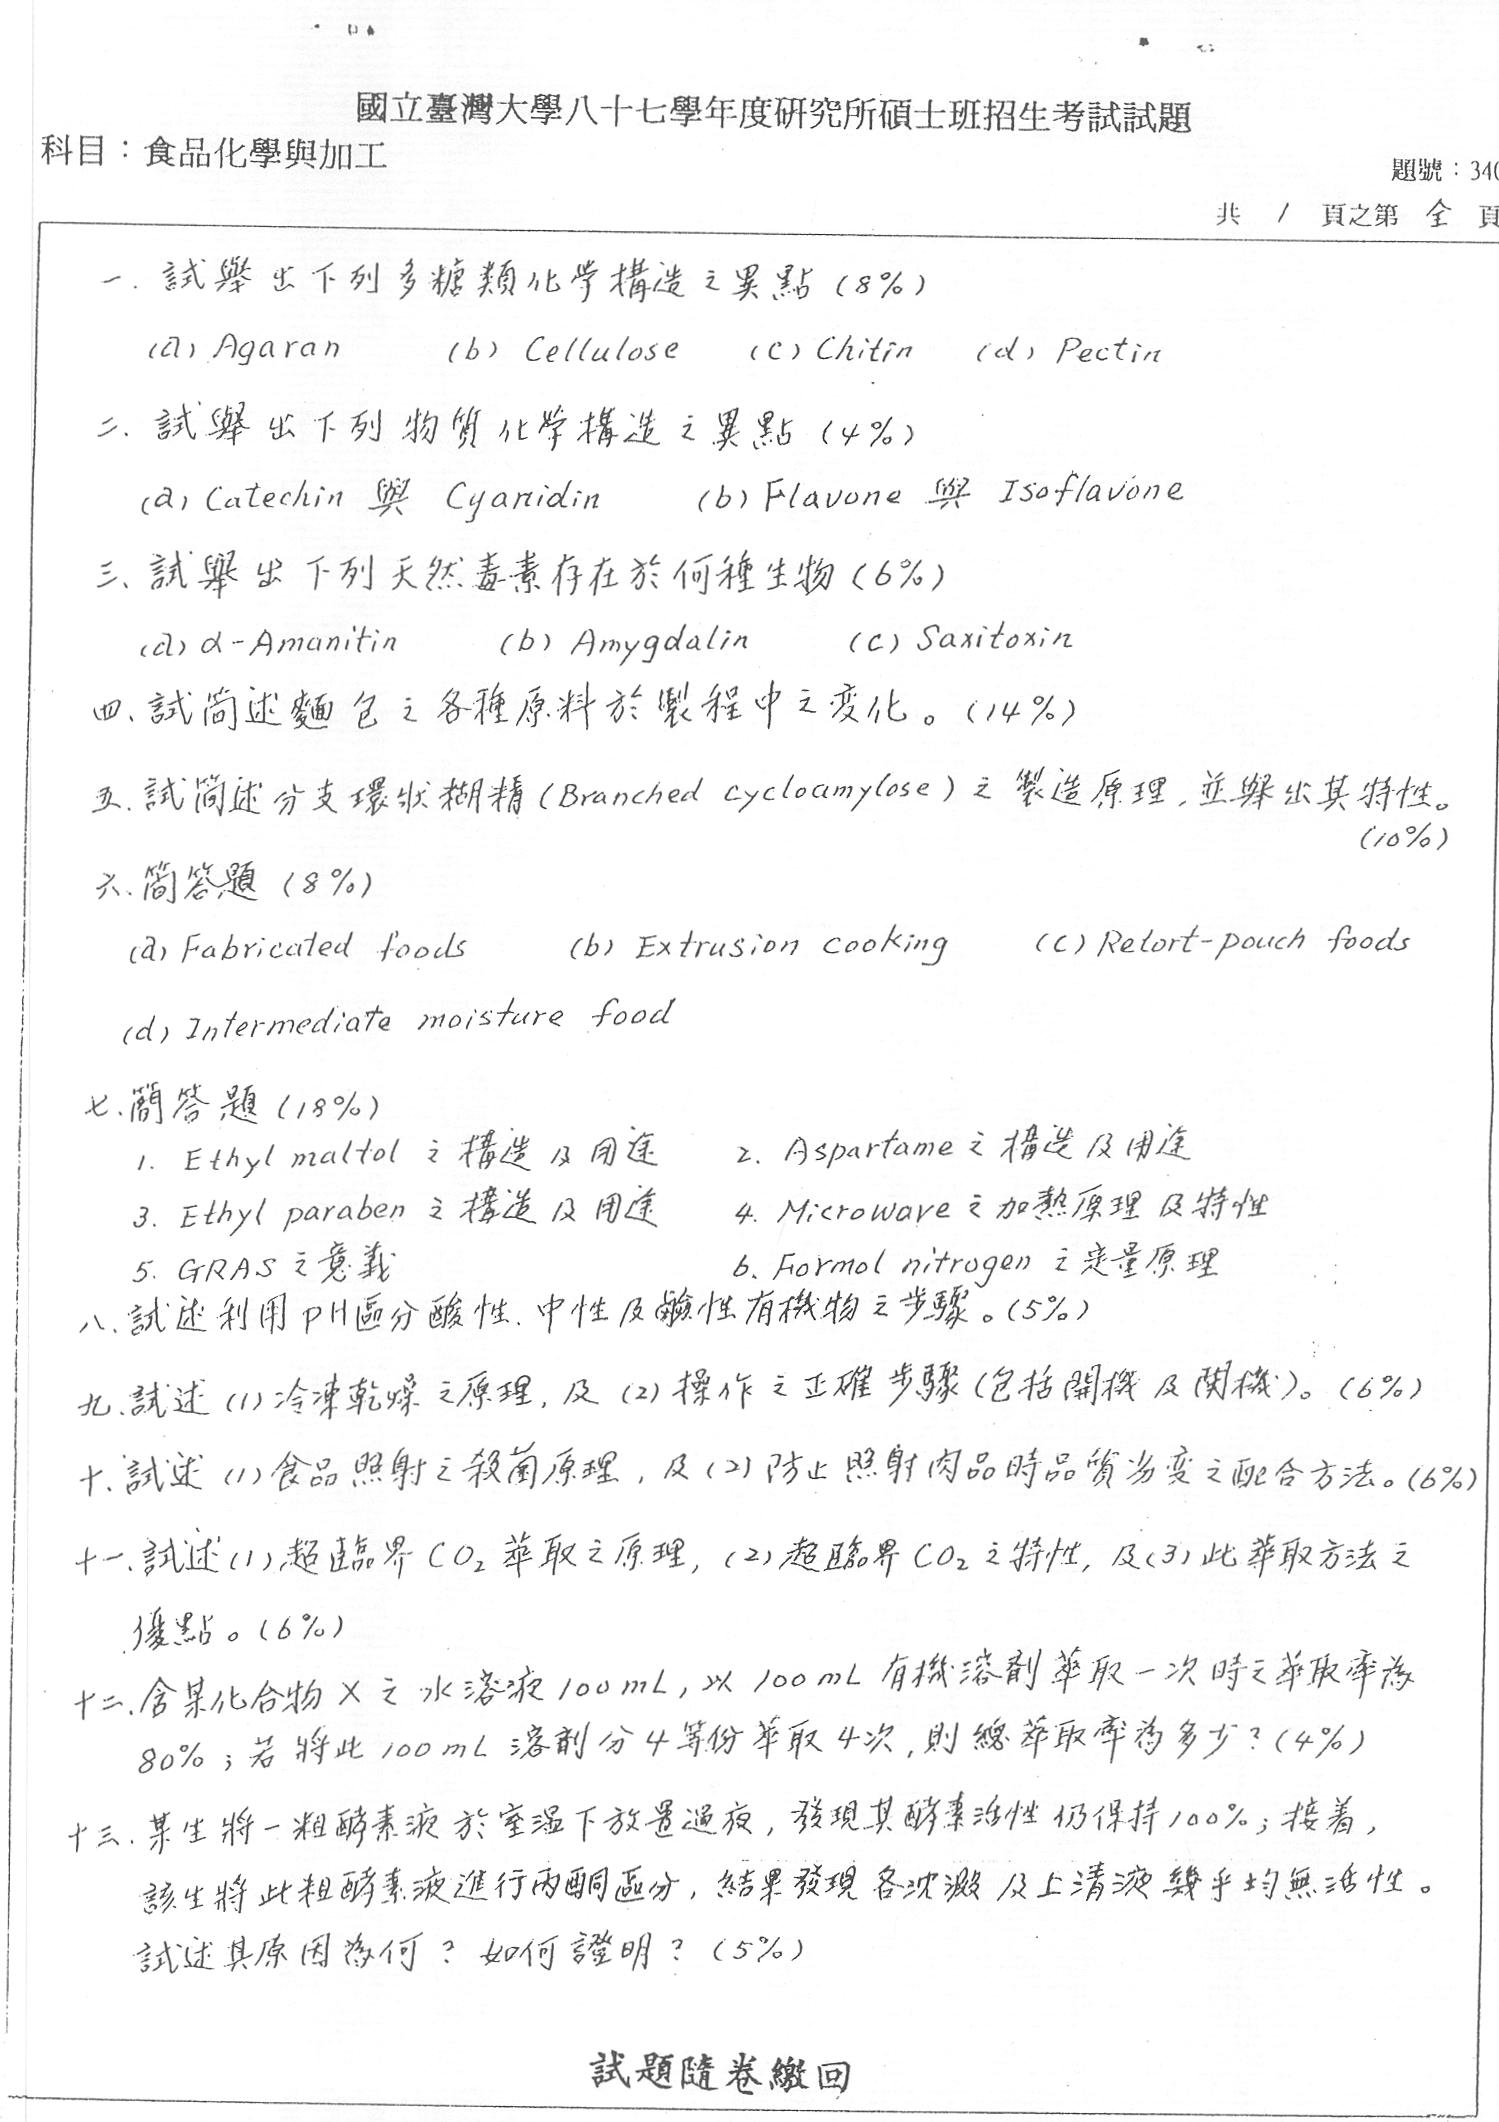 國立臺灣大學八十七學年度研究所碩士班招生考試試題
科目：食品化學與加工
題號：340
共 1 頁之第 全 頁
一. 試舉出下列多糖類化學構造之異點 (8%)
(a) Agaran (b) Cellulose (c) Chitin (d) Pectin
二. 試舉出下列物質化學構造之異點 (4%)
(a) Catechin 與 Cyanidin (b) Flavone 與 Isoflavone
三、試舉出下列天然毒素存在於何種生物 (6%)
(a) α-Amanitin (b) Amygdalin (c) Saxitoxin
四、試简述麵包之各種原料於製程中之变化。(14%)
五、試简述分支環狀糊精 (Branched cycloamylose) 之製造原理, 並舉出其特性。
(10%)
六、简答題 (8%)
(a) Fabricated foods (b) Extrusion cooking (c) Retort-pouch foods
(d) Intermediate moisture food
七、簡答題 (18%)
1. Ethyl maltol 之構造及用途 2. Aspartame 之構造及用途
3. Ethyl paraben 之構造及用途 4. Microwave 之加熱原理及特性
5. GRAS 之意義 6. Formol nitrogen 之定量原理
八、試述利用 pH 區分酸性、中性及鹼性有機物之步驟。(5%)
九、試述 (1) 冷凍乾燥之原理, 及 (2) 操作之正確步驟 (包括開機及関機)。(6%)
十、試述 (1) 食品照射之殺菌原理, 及 (2) 防止照射肉品時品質劣变之配合方法。(6%)
十一、試述 (1) 超臨界 CO₂ 萃取之原理, (2) 超臨界 CO₂ 之特性, 及 (3) 此萃取方法之
優點。(6%)
十二、含某化合物 X 之水溶液 100 mL, 以 100 mL 有機溶劑萃取一次時之萃取率為
80%; 若將此 100 mL 溶劑分 4 等份萃取 4 次, 則總萃取率為多少? (4%)
十三、某生將一粗酵素液於室温下放置過夜, 發現其酵素活性仍保持 100%; 接着,
該生將此粗酵素液進行丙酮區分, 結果發現各沈澱及上清液幾乎均無活性。
試述其原因為何? 如何證明? (5%)
試題隨卷繳回